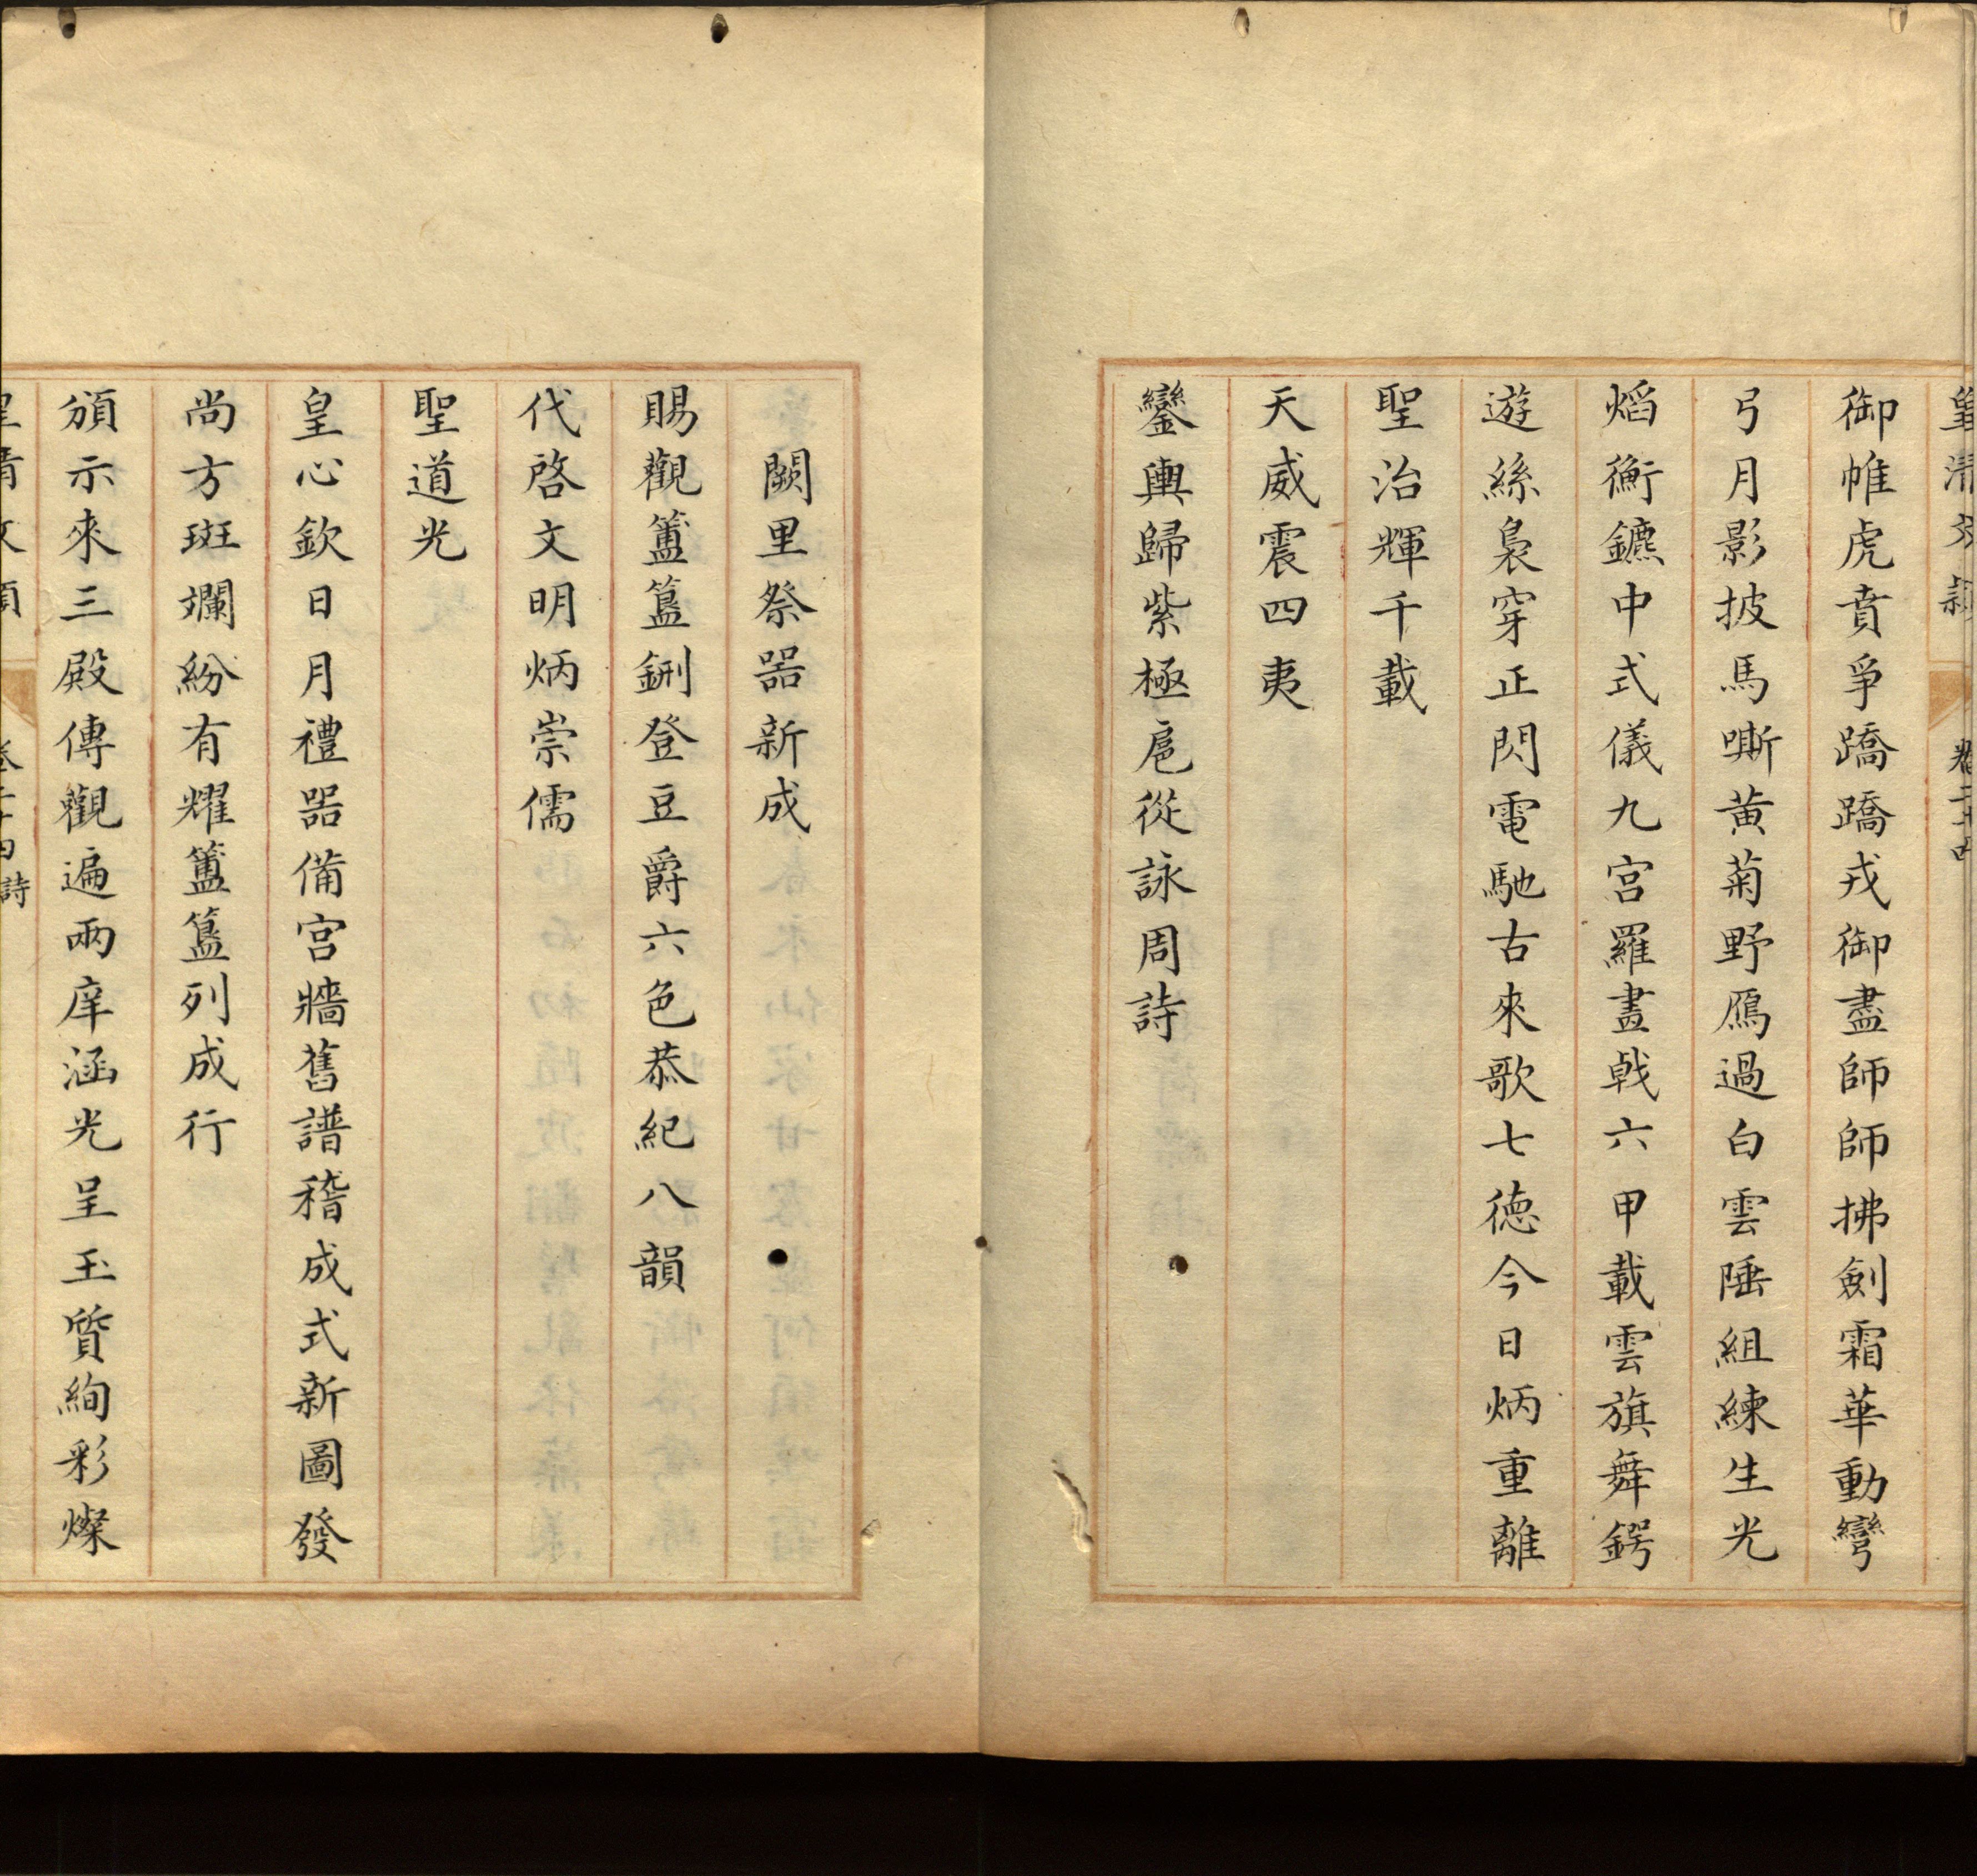 皇清文穎　卷二十四
御帷虎賁爭蹻蹻戎御盡師師拂劍霜華動彎
弓月影披馬嘶黃菊野鴈過白雲陲組練生光
熖衡鑣中式儀九宮羅畫戟六甲載雲旗舞鍔
遊絲裊穿正閃電馳古來歌七德今日炳重離
聖治輝千載
天威震四夷
鑾輿歸紫極扈從詠周詩
闕里祭噐新成
賜觀簠簋鉶登豆爵六色恭紀八韻
代啓文明炳崇儒
聖道光
皇心欽日月禮噐備宮牆舊譜稽成式新圖發
尚方斑斕紛有耀簠簋列成行
頒示來三殿傳觀遍兩庠涵光呈玉質絢彩燦
皇清文穎　卷二十四詩